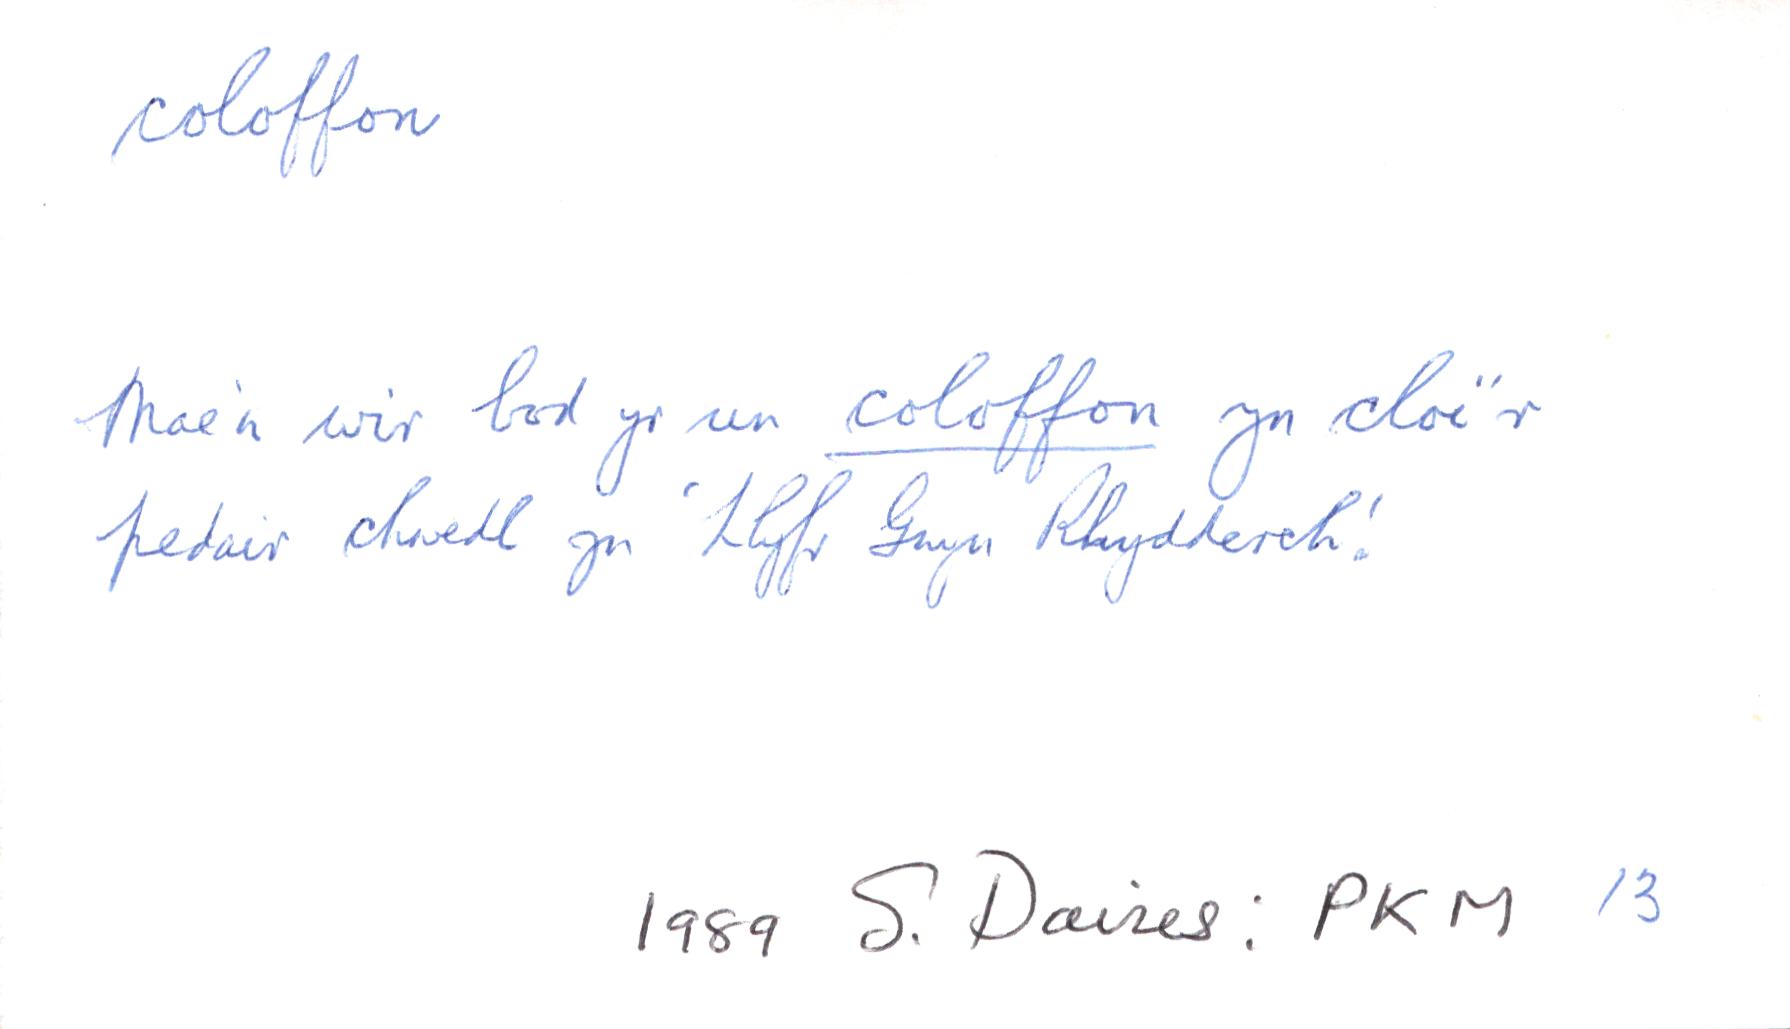 coloffon
Mae'n wir bod yr un coloffon yn cloi'r
pedair chwedl yn 'Llyfr Gwyn Rhydderch'.
1989 S. Davies: PKM 13